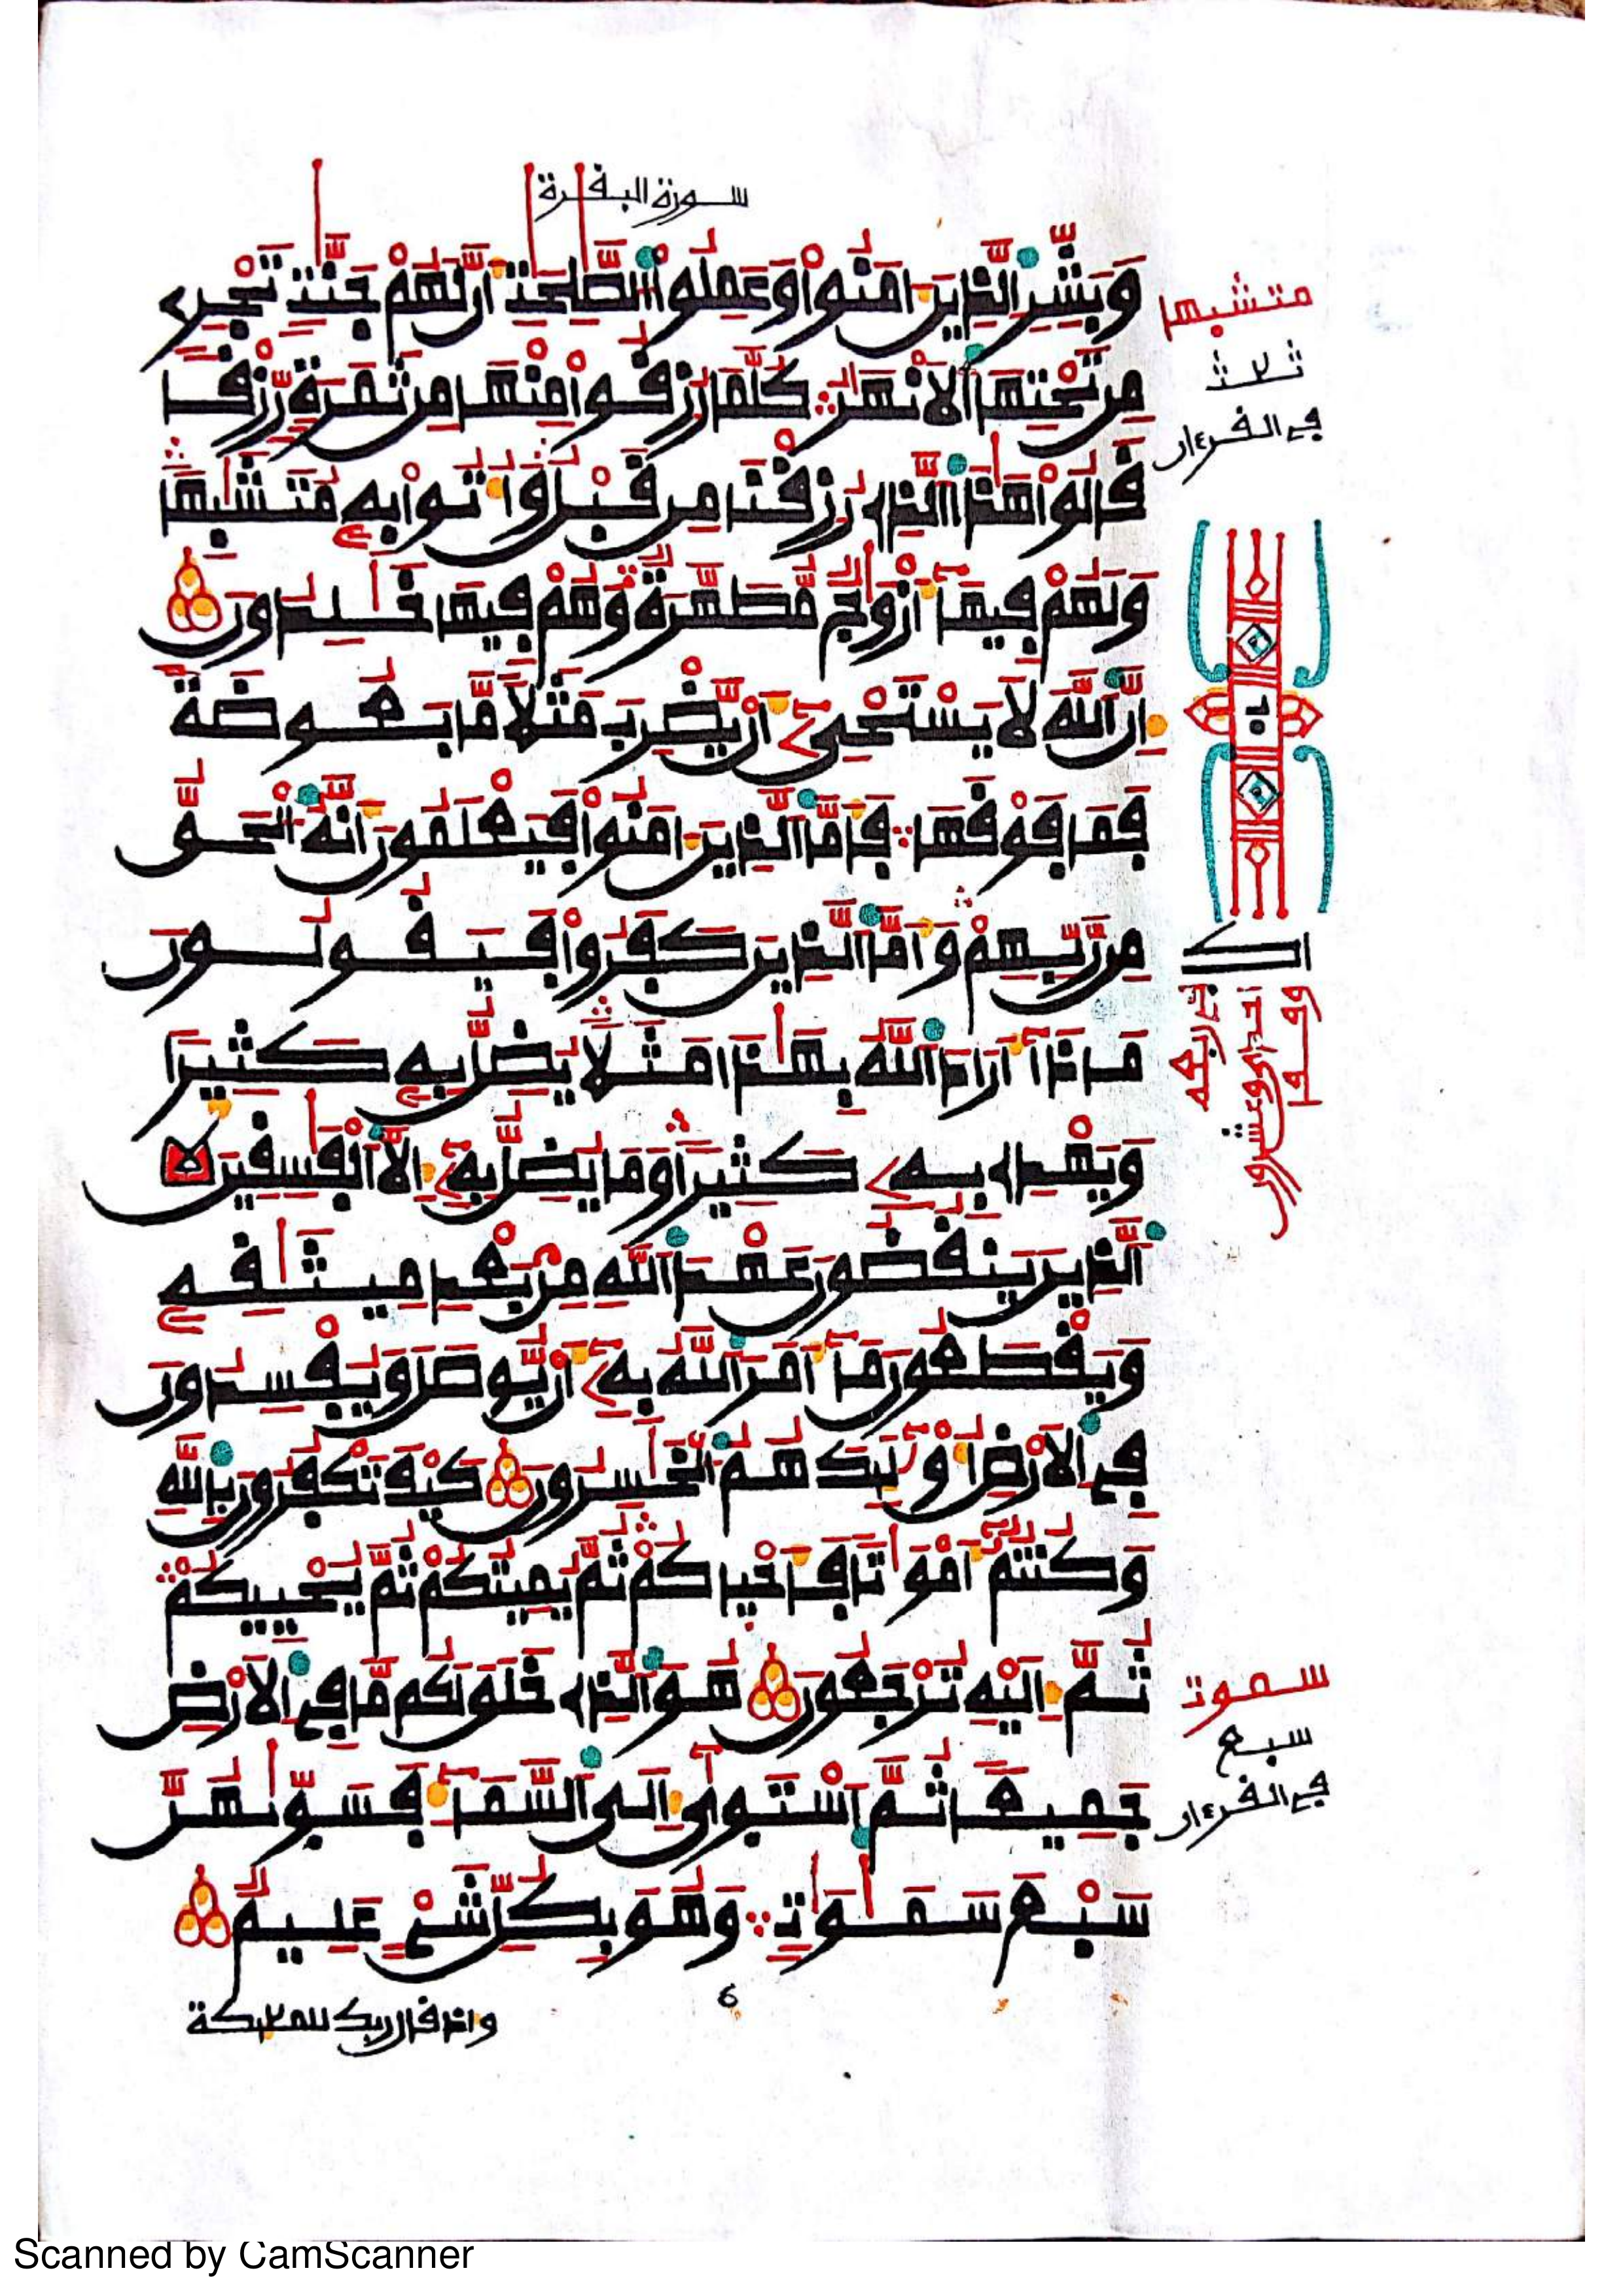 سورة البقرة
وَبَشِّرِ الَّذِينَ ءَامَنُواْ وَعَمِلُواْ الصَّٰلِحَٰتِ أَنَّ لَهُمْ جَنَّٰتٍ تَجْرِے
مِن تَحْتِهَا الَانْهَٰرُ كُلَّمَا رُزِقُواْ مِنْهَا مِن ثَمَرَةٍ رِّزْقا
قَالُواْ هَٰذَا الَّذِے رُزِقْنَا مِن قَبْلُ وَأُتُواْ بِهِۦ مُتَشَٰبِهاً
وَلَهُمْ فِيهَآ أَزْوَٰجٌ مُّطَهَّرَةٌ وَهُمْ فِيهَا خَٰلِدُونَ
إِنَّ اللَّهَ لَا يَسْتَحْيِۦٓ أَنْ يَّضْرِبَ مَثَلًا مَّا بَعُوضَةً
فَمَا فَوْقَهَا فَأَمَّا الَّذِينَ ءَامَنُواْ فَيَعْلَمُونَ أَنَّهُ الْحَقُّ
مِن رَّبِّهِمْ وَأَمَّا الَّذِينَ كَفَرُواْ فَيَقُولُونَ
مَاذَآ أَرَادَ اللَّهُ بِهَٰذَا مَثَلًا يُضِلُّ بِهِۦ كَثِيرا
وَيَهْدِے بِهِۦ كَثِيراً وَمَا يُضِلُّ بِهِۦٓ إِلَّا الْفَٰسِقِينَ
الَّذِينَ يَنقُضُونَ عَهْدَ اللَّهِ مِنۢ بَعْدِ مِيثَٰقِهِۦ
وَيَقْطَعُونَ مَآ أَمَرَ اللَّهُ بِهِۦٓ أَنْ يُّوصَلَ وَيُفْسِدُونَ
فِے الَارْضِ أُوْلَٰٓئِكَ هُمُ الْخَٰسِرُونَ كَيْفَ تَكْفُرُونَ بِاللَّهِ
وَكُنتُمُ أَمْوَٰتاً فَأَحْيَاكُمْ ثُمَّ يُمِيتُكُمْ ثُمَّ يُحْيِيكُمْ
ثُمَّ إِلَيْهِ تُرْجَعُونَ هُوَ الَّذِے خَلَقَ لَكُم مَّا فِے الَارْضِ
جَمِيعاً ثُمَّ اسْتَوَىٰٓ إِلَى السَّمَآءِ فَسَوَّىٰهُنَّ
سَبْعَ سَمَٰوَٰتٍ وَهُوَ بِكُلِّ شَےْءٍ عَلِيمٌ
6
وإذ قال ربك للملئكة
متشبها
ثلث
في القرءان
سموت
سبع
في القرءان
Scanned by CamScanner